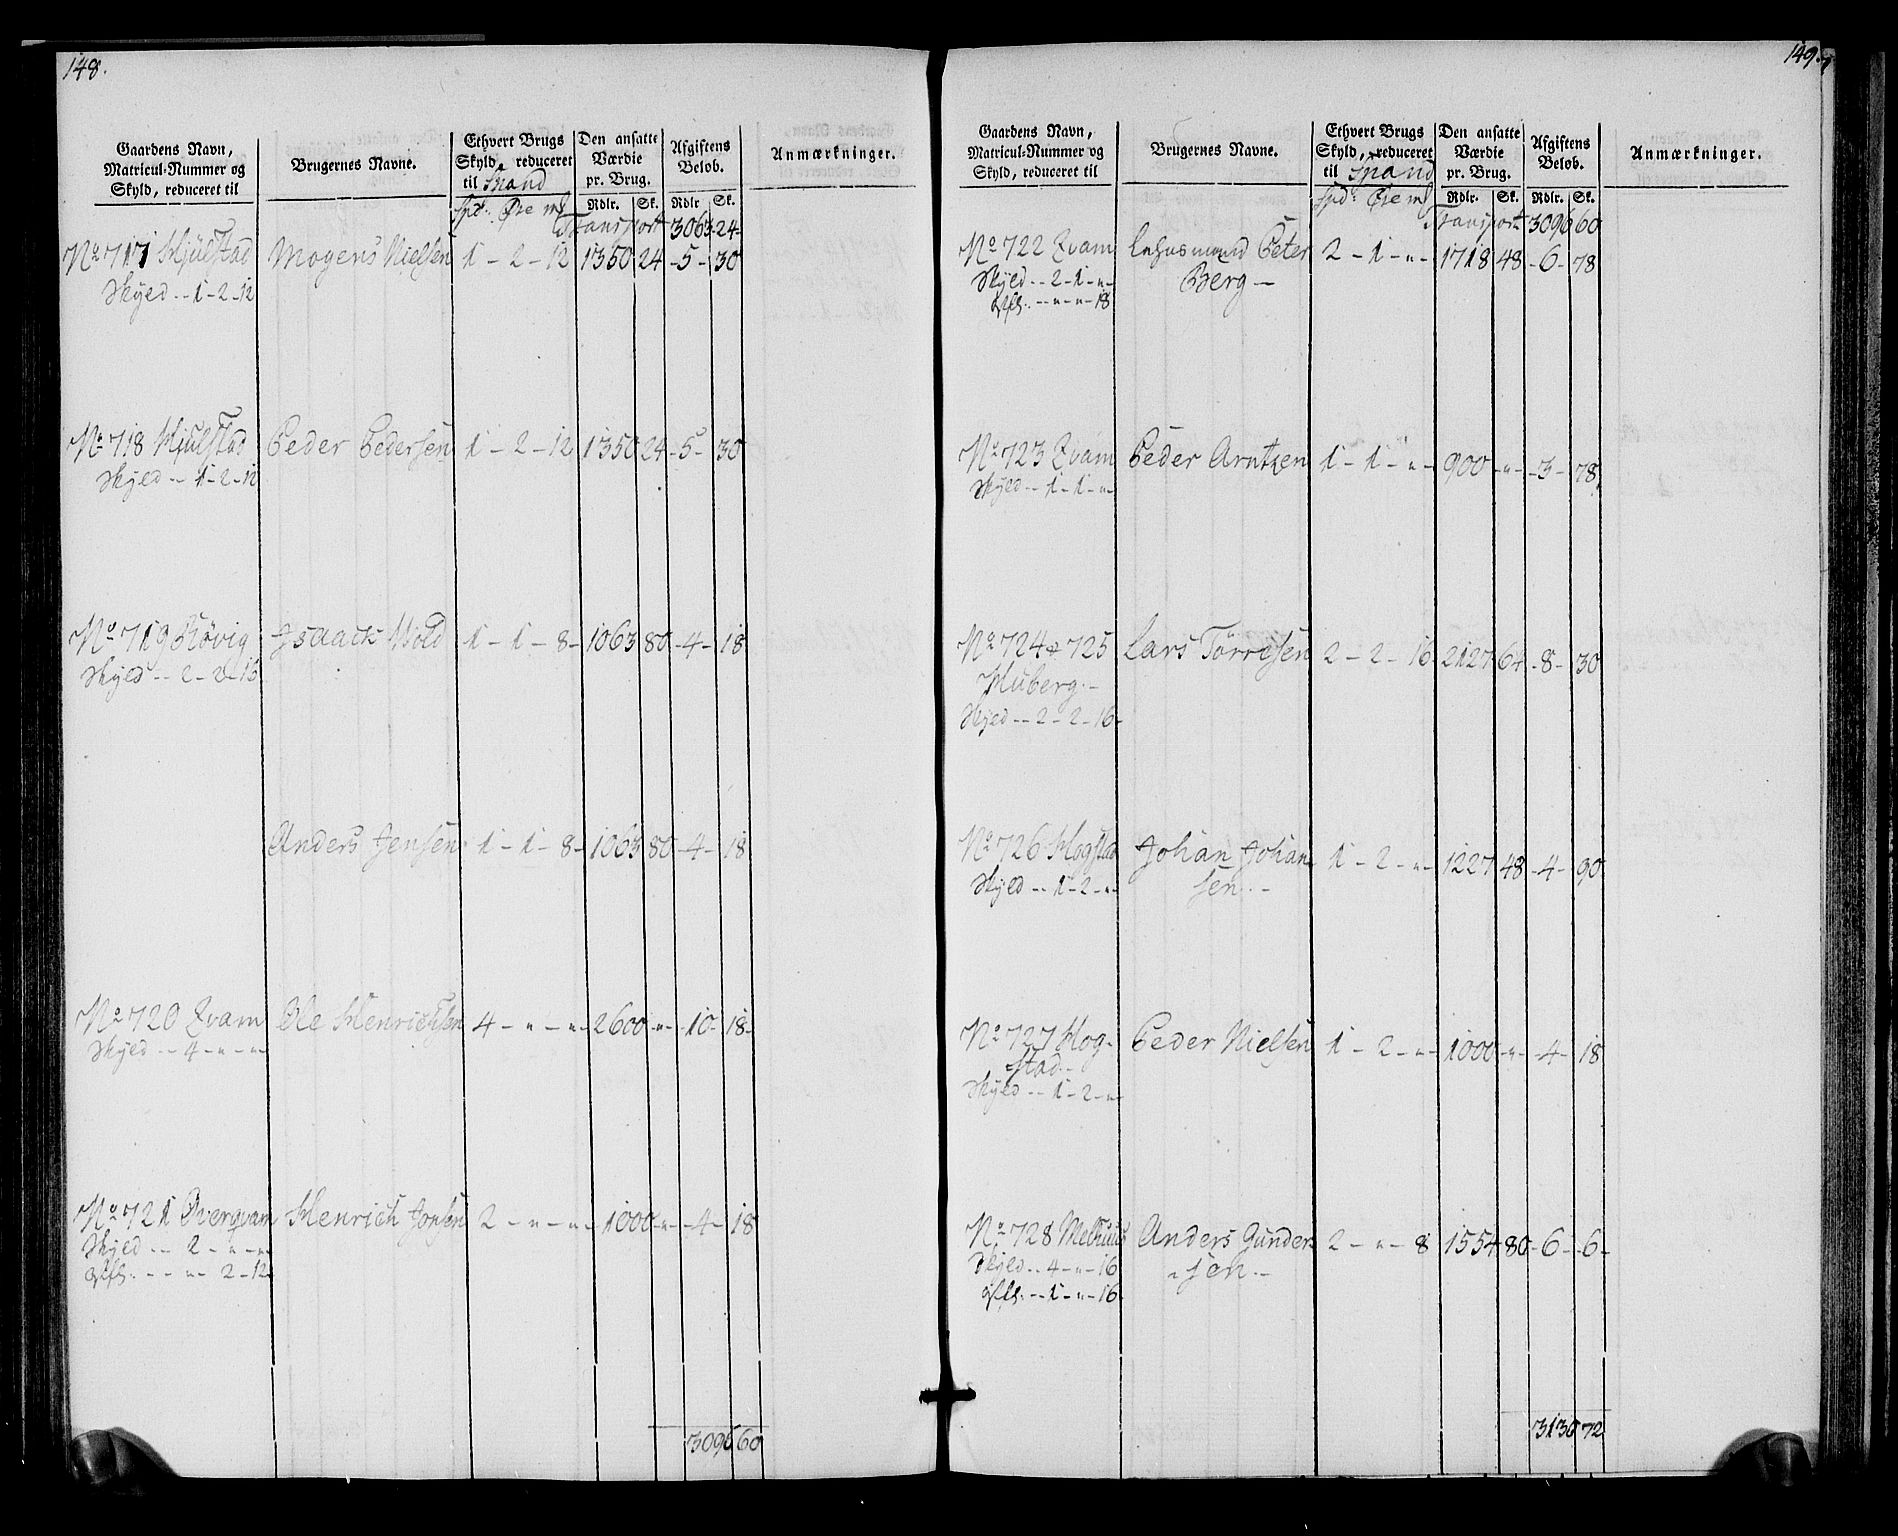 148.
Gaardens Navn, Matricul-Nummer og Skyld, reduceret til
Brugernes Navne.
Ethvert Brugs Skyld, reduceret til Spand
Den ansatte Værdie pr. Brug.
Afgiftens Beløb.
Anmærkninger.
Spd: Øre ml
Rdlr. Sk. Rdlr Sk.
Transport 3063 24
No 717 Hjulstad Mogens Nielsen 1 - 2 - 12 1350 24 - 5 - 30
Skyld -- 1 - 2 - 12
No 718 Hjulstad Peder Pedersen 1 - 2 - 12 1350 24 - 5 - 30
Skyld -- 1 - 2 - 12
No 719 Røvig Isaack Wold 1 - 1 - 8 - 1063 80 - 4 - 18
Skyld -- 2 - 2 - 16
Anders Jensen 1 - 1 - 8 - 1063 80 - 4 - 18
No 720 Qvam Ole Henrichsen 4 - " - " - 2600 - " - 10 - 18 -
Skyld -- 4 - " - "
No 721 Overqvam Henrich Jonsen 2 - " - " - 1000 - " - 4 - 18
Skyld -- 2 - " - "
Afh. -- " - 2 - 12
3096 60
149.
Gaardens Navn, Matricul-Nummer og Skyld, reduceret til
Brugernes Navne.
Ethvert Brugs Skyld, reduceret til Spand
Den ansatte Værdie pr. Brug.
Afgiftens Beløb.
Anmærkninger.
Spd: Øre ml
Rdlr. Sk. Rdlr. Sk.
Transport 3096 60
No 722 Qvam Lehnsmand Peter 2 - 1 - " - 1718 48 - 6 - 78
Skyld -- 2 - 1 - " Berg -
Afh. -- " - " - 18
No 723 Qvam Peder Arntzen 1 - 1 - " - 900 - " - 3 - 78
Skyld -- 1 - 1 - "
No 724 & 725 Lars Tørresen 2 - 2 - 16 2127 64 - 8 - 30
Huberg. -
Skyld -- 2 - 2 - 16 -
No 726 Hogstad Johan Johan 1 - 2 - " - 1227 48 - 4 - 90
Skyld -- 1 - 2 - " sen. -
No 727 Hog- Peder Nielsen 1 - 2 - " - 1000 - " - 4 - 18
stad -
Skyld -- 1 - 2 - "
No 728 Melhuus Anders Gunder 2 - " - 8 1554 80 - 6 - 6 -
Skyld -- 4 - " - 16 - sen. -
Afh. -- 1 - " - 16
3130 72